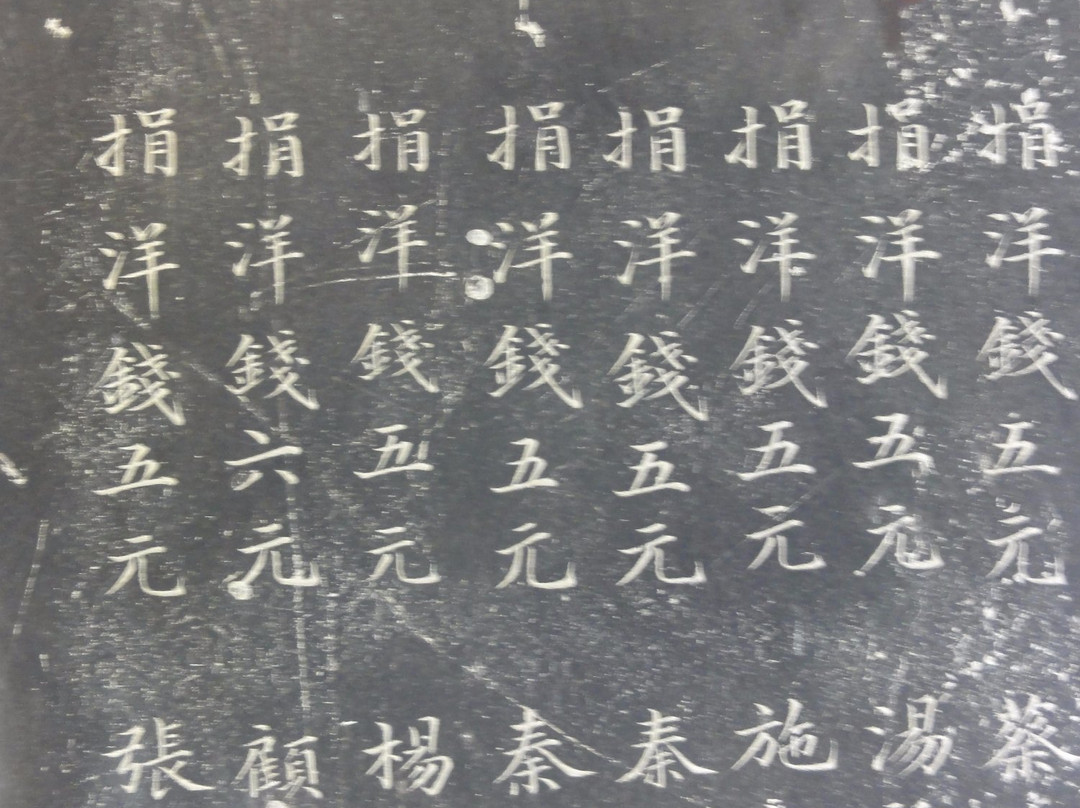 捐洋錢五元蔡
捐洋錢五元湯
捐洋錢五元施
捐洋錢五元秦
捐洋錢五元秦
捐洋錢五元楊
捐洋錢六元顧
捐洋錢五元張